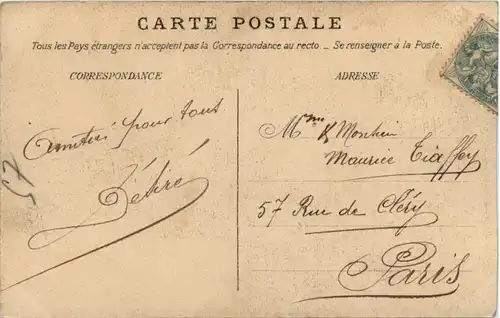 CARTE POSTALE
Tous les Pays étrangers n'acceptent pas la Correspondance au recto. _ Se renseigner à la Poste.
CORRESPONDANCE
ADRESSE
Amitié pour tous
Désiré
Mme &
Maurice
57 Rue de Cléry
Paris
57